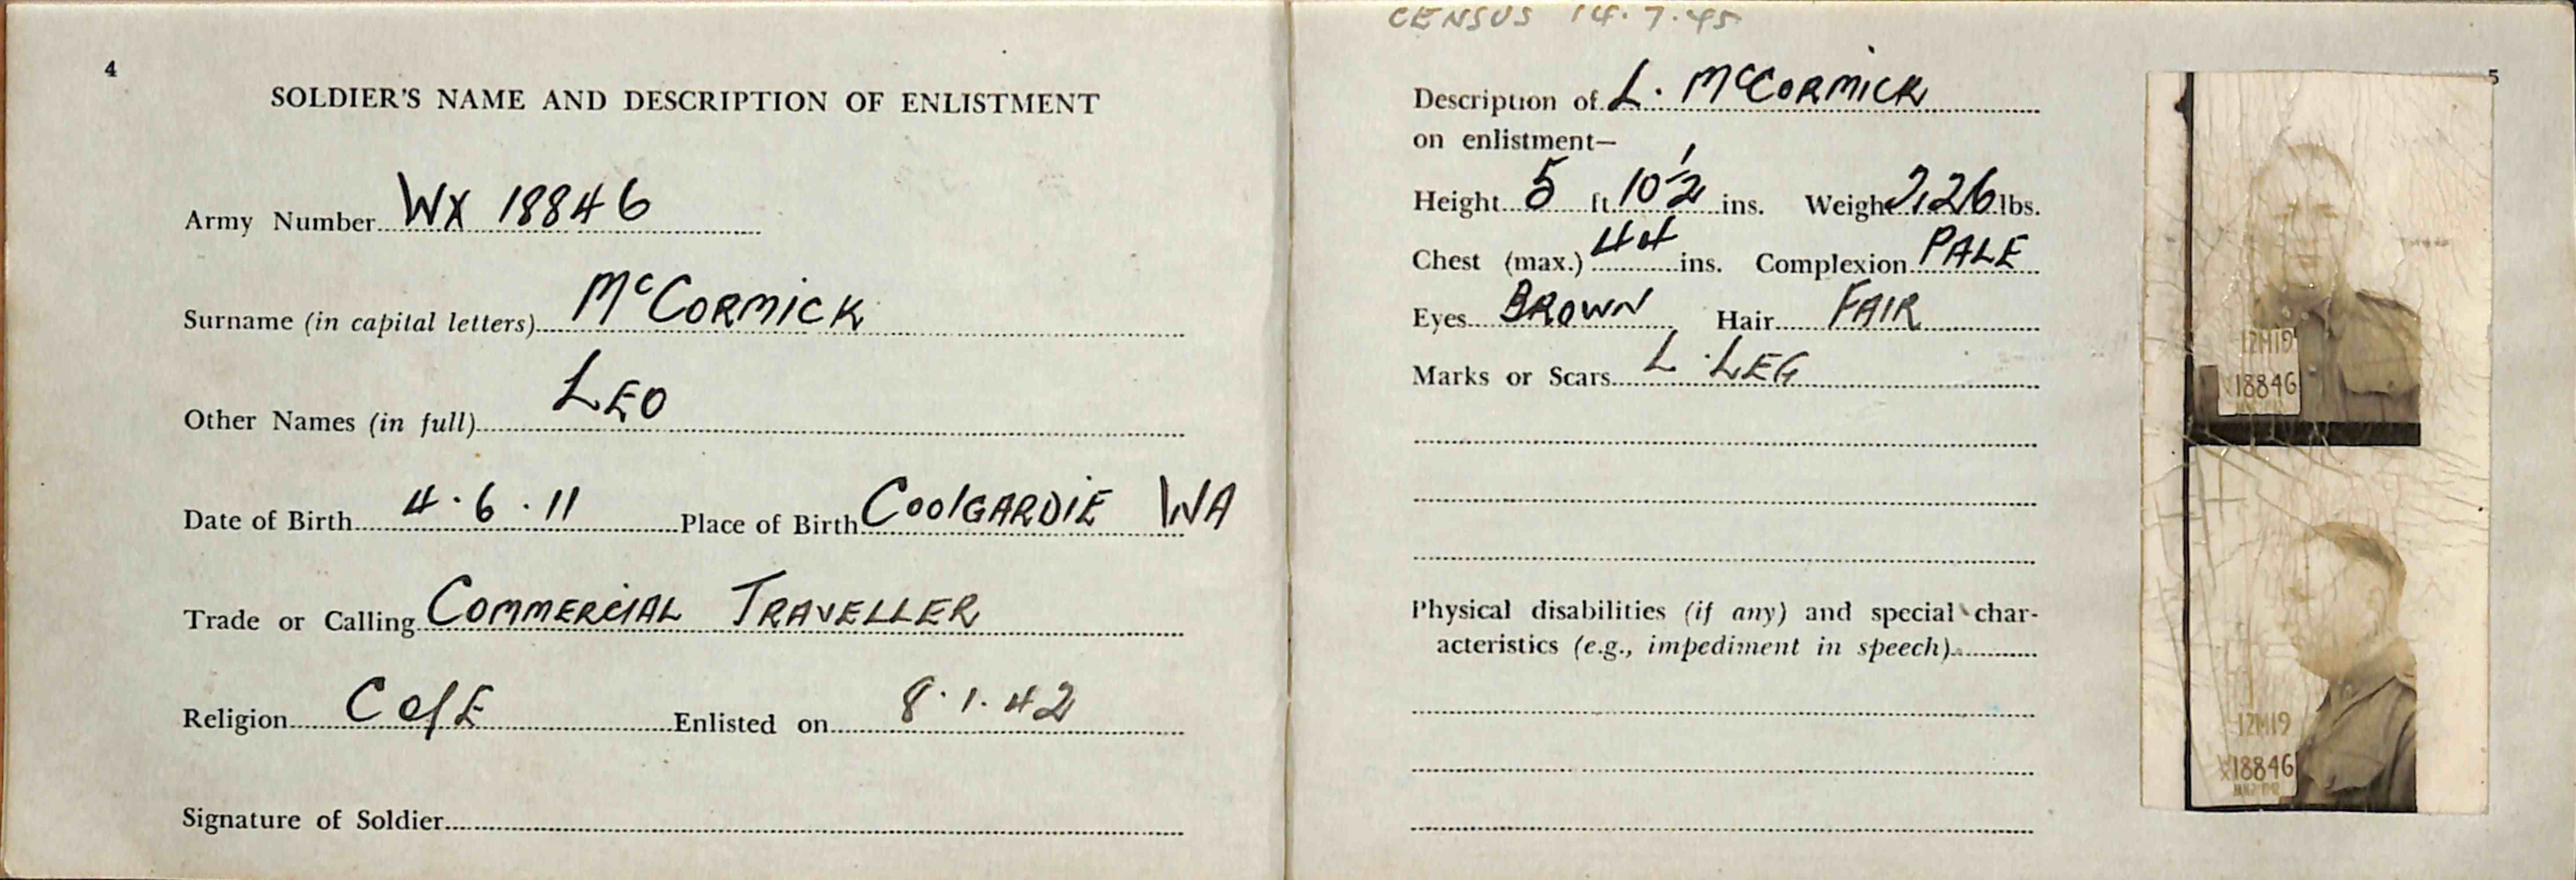 4
SOLDIER'S NAME AND DESCRIPTION OF ENLISTMENT
Army Number WX 18846
Surname (in capital letters) McCORMICK
Other Names (in full) LEO
Date of Birth 4.6.11 Place of Birth COOlGARDIE WA
Trade or Calling COMMERCIAL TRAVELLER
Religion C of E Enlisted on 8.1.42
Signature of Soldier
CENSUS 14.7.45
5
Description of L. McCORMICK
on enlistment—
Height 5 ft 10 1/2 ins. Weight 226 lbs.
Chest (max.) 44 ins. Complexion PALE
Eyes BROWN Hair FAIR
Marks or Scars L. LEG
Physical disabilities (if any) and special char-
acteristics (e.g., impediment in speech)
12M19
18846
12M19
X18846